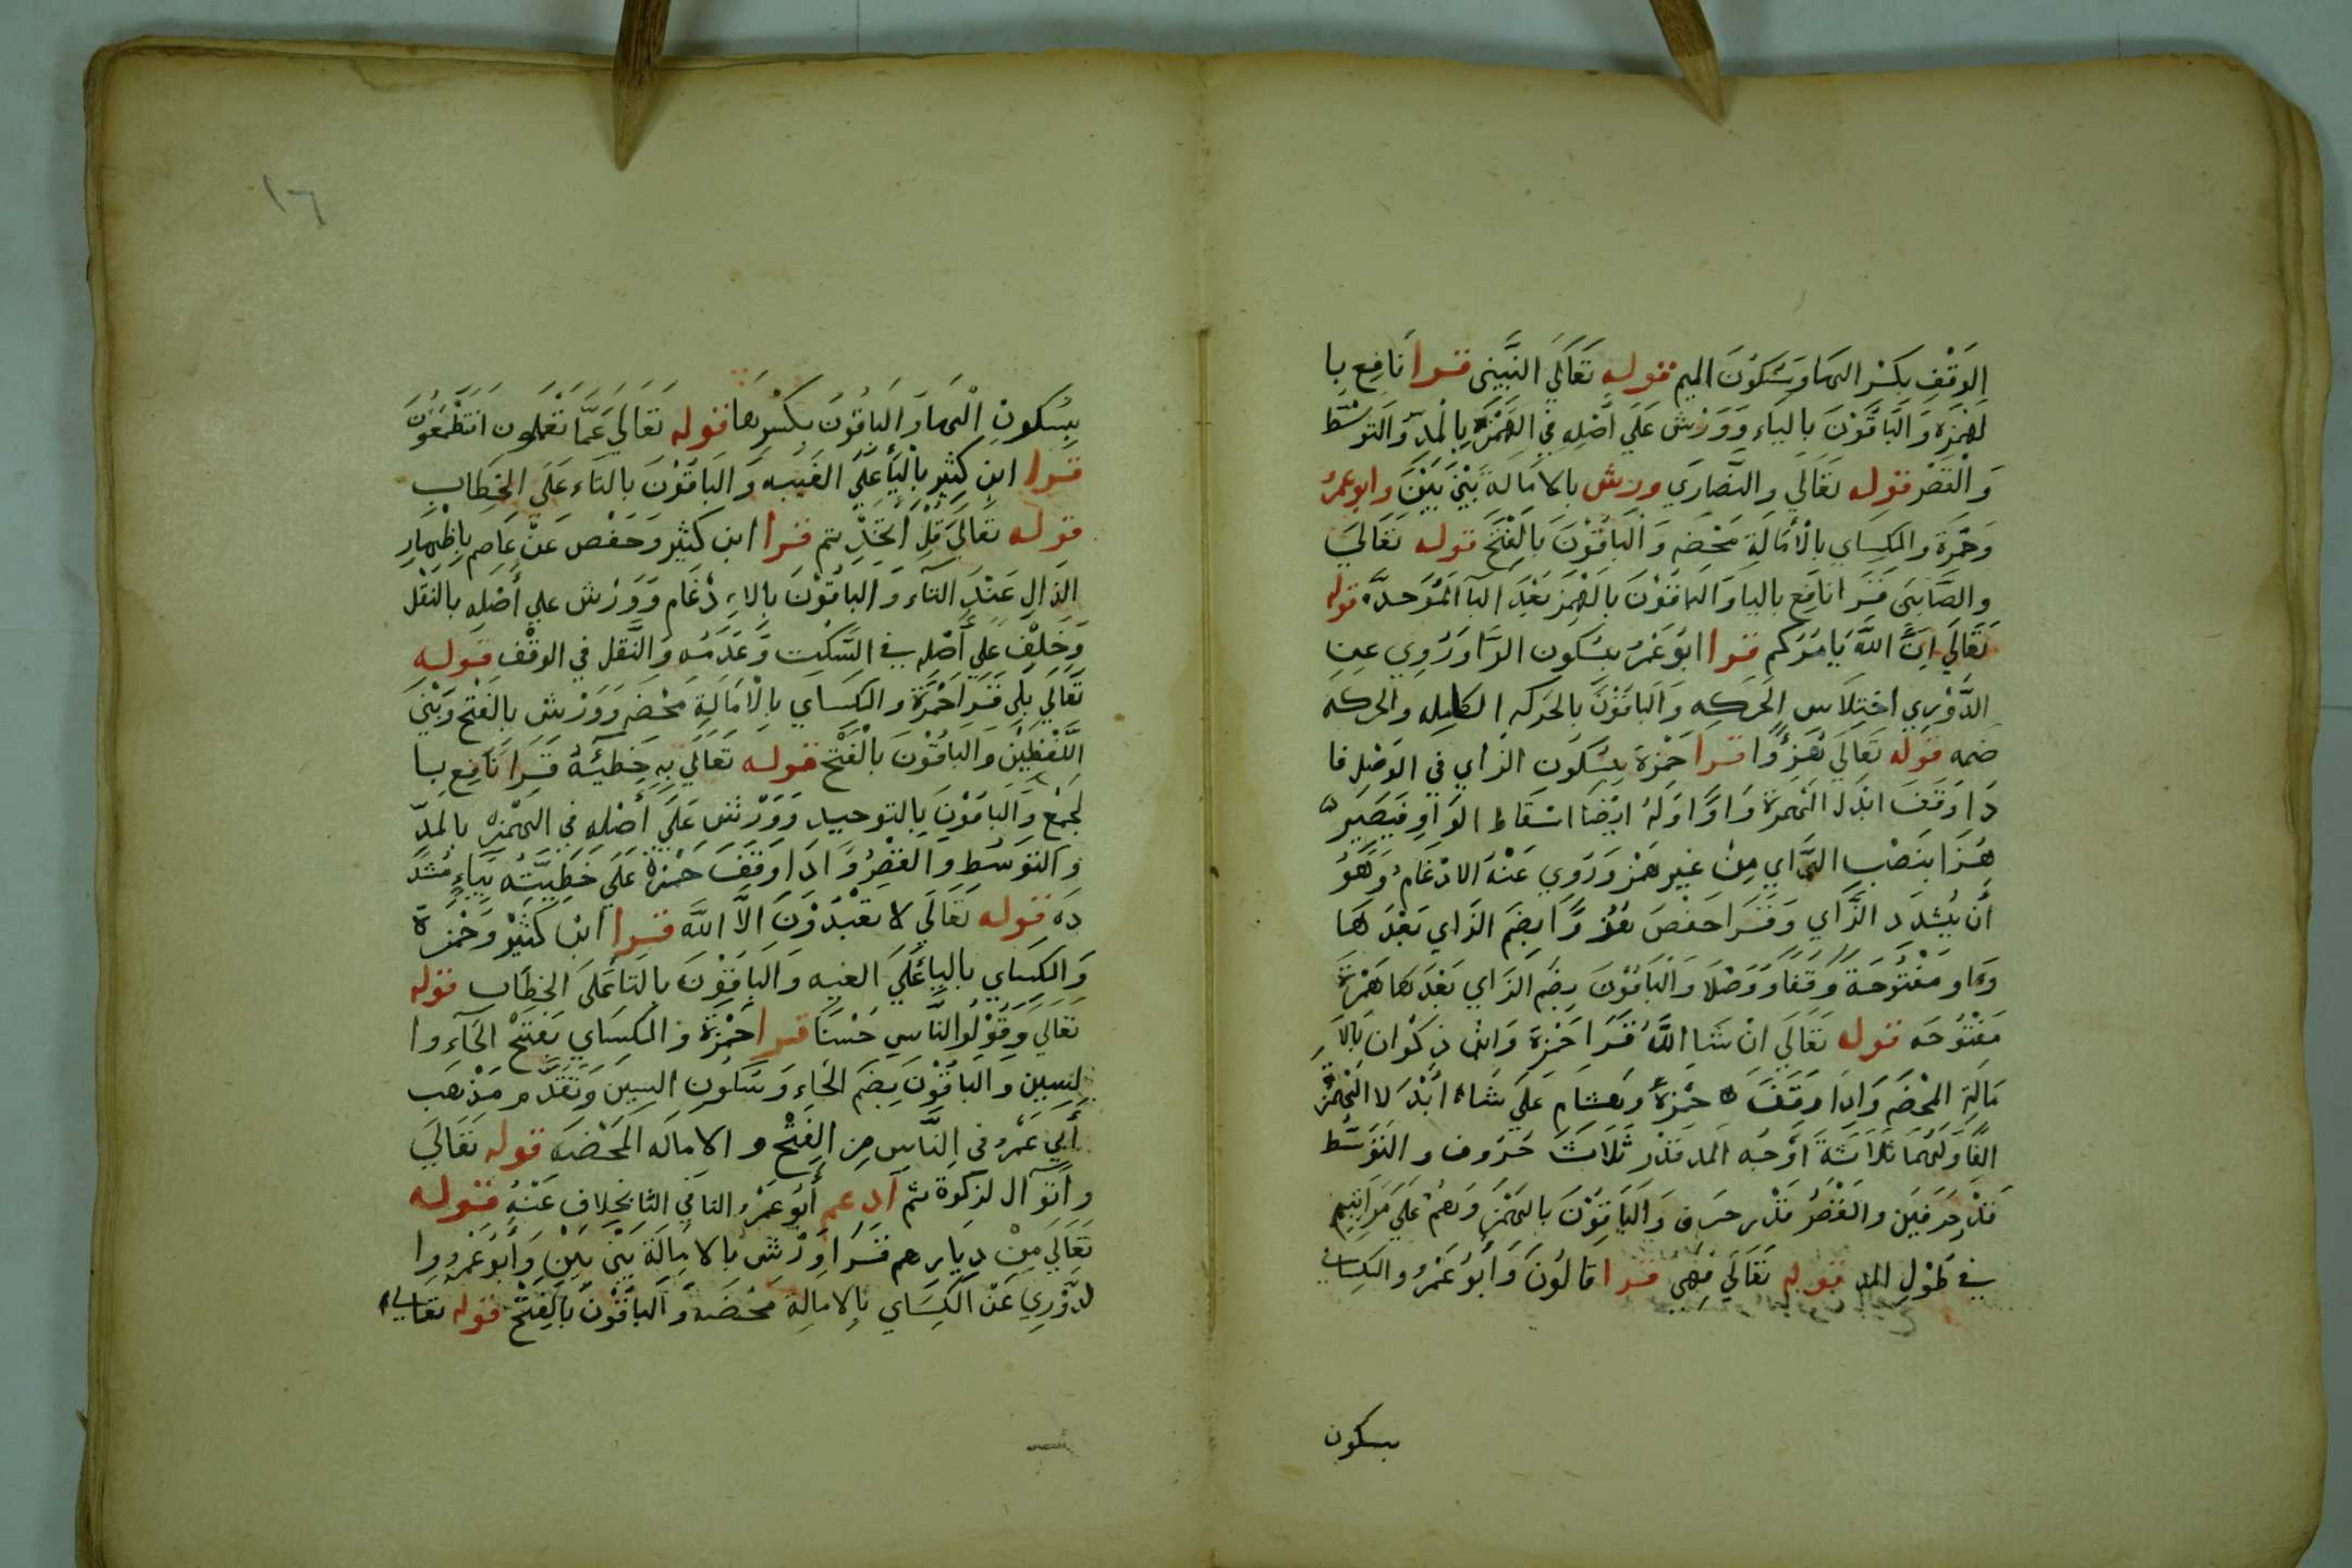 الوَقْفِ بكَسْرِ الهَا وَسُكُونَ الميم قوله تَعَالَي النَّبِيِّنَ قرا نَافِع بِا
لهَمْزَه وَالْبَاقُوْنَ بِاليَاء وَوَرْش عَلَي أَصْلِهِ فِي الهَمْزَه بِالْمَدِّ والتوَسّط
وَالْقَصْر قوله تعَالي والنَّصَارَي ورش بالامَالَة بَيْنَ بَيْنَ وابوعمرُ
وَحَمْزَة والكِسَاي بالْأمَالَة مَحْضَه وَالْبَاقُوْنَ بَالْفَتْحَ قوله تعَالَي
والصَّابِئينَ قَرَا نَافِع باليا وَالبَاقُوْنَ بَالهَمْزَ بَعْدَ البَا المُوَحدَّه قوله
تَعَالَي إنَّ اللَّهَ يَامُرُكم قرا ابُوعَمْرُ بسُكونِ الرَّا وَرُوِي عنِ
الدُّوْرِي اختِلَاس الْحَركه وَالبَاقُوْنَ بالحَرَكه الكامِله والحركه
ضمه قوله تَعَالَي هُزُوًا قرا حَمْزَة بِسُكُون الزاي في الوَصْل فا
ذا وَقَفَ ابْدَل الْهمْزَة وَاوًا وَلَهُ ايْضًا اسْقَاط الوَاوِ فيَصَير
هُزَا بنَصْب الزَّاي مِنْ غير هَمْز وَرُوِي عَنْهُ الادْغام وَهُوَ
أن يُشدِد الزَّاي وَقَرَا حَفْصَ هُزُوًا بضَم الزاي بَعْدَهَا
وَاو مَفْتُوحَةً وَقفًا وَوَصْلَا وَالبَاقُوْنَ بضَم الزَاي بَعْدَهَا هَمْزَة
مَفْتُوحَه قوله تعَالَي انْ شَا اللَّهُ قَرَا حَمْزَة وَابْن ذِكْوَان بِالْاِ
مَالَةِ المحْضَه وَإذَا وَقَفَ حَمْزَة وَهشَام عَلَي شَاءَ ابْدَلا الْهَمْزَة
الفًا وَلَهُمَا ثَلاثَةَ أوْجُه المد قَدْر ثَلَاثَ حُرُوف والتَوَسُّط
قَدْر حَرَفَين وَالقَصْرُ قَدْر حَرف وَالْبَاقُوْنَ بالهَمْزَ وَهُمْ عَلَي مَرَاتِبِهِم
في طُوْلِ المد قوله تَعَالَي فَهِيَ قرا قَالُونَ وَأبُوعَمْرُ والكِسَاي
بسكون
١٦
بِسُكونِ الْهَاءِ وَالبَاقُونَ بِكَسْرِهَا قوله تَعَالَي عَمَّا تَعْمَلون افتَطْمَعُونَ
قرا ابن كَثِير بالْيَا عَلَي الغَيْبه وَالبَاقُوْنَ بالتاء عَلَي الخِطَاب
قوله تعَالَي قُلْ أتَّخَذْتم قرا ابن كَثير وَحَفْص عَنْ عَاصِم بِإظهَارِ
الذال عِنْدَ التَاء وَالبَاقُوْنَ بِالاِدْغَام وَوَرْش عَلي أصْلِه بالنَقْل
وَخَلِف عَلَي أصْلِه في السَّكت وَعَدَمُه وَالنَّقل في الوَقْفِ قوله
تَعَالَي بَلَي قَرَا حَمْزَة والكسَاي بِالْامَالَةِ مَحْضَه وَوَرْش بِالفَتْح وَبَيْنَ
اللَّفْظَيْن وَالبَاقُوْنَ بالْفَتْح قوله تَعَالَي بِهِ خَطِئَتهُ قَرَا نَافِع با
لجَمْع وَالبَاقُوْنَ بِالتوحيد وَوَرْش عَلَي أصْلِهِ فِي الهَمْزه بالمدِّ
والتوَسُّطِ والقصْرُ وَاذَا وَقفَ حَمْزَة عَلَي خَطِيَّتُه بيَاءٍ مُشَدَّ
دَه قوله تَعَالَي لا تعْبُدُوْنَ الّا اللَّه قرا ابْن كَثِيْر وَحَمْزَة
وَالكِسَاي بالياء عَلَي الغيبه وَالبَاقُوْنَ بالتا عَلَي الخِطَاب قوله
تَعَالَي وَقُوْلُوا لِلنَّاسِ حُسْنًا قرا حَمْزَة والكِسَاي بَفتْح الحَاء وا
لسِين وَالبَاقُوْنَ بضَم الحَاء وَسُكون السِينَ وَتَقَدَّم مَذْهَب
أبي عَمْرُ في النَّاس مِن الفَتْح والامالَه المَحْضَه قوله تعَالَي
وآتُوْا الزكوَة ثم ادعم أبُوعَمْرُ التا في الثا بخِلاف عَنْهُ قوله
تَعَالَي مِنْ دِيَارِهم قَرَا وَرْش بالامَالَة بَيْنَ بَيْنَ وَأبُوعَمْرُ وا
لدُّوْرِي عَنْ الكِسَاي بالامالة مَحْضَه وَالبَاقُوْنَ بالفَتْح قوله تعَالي